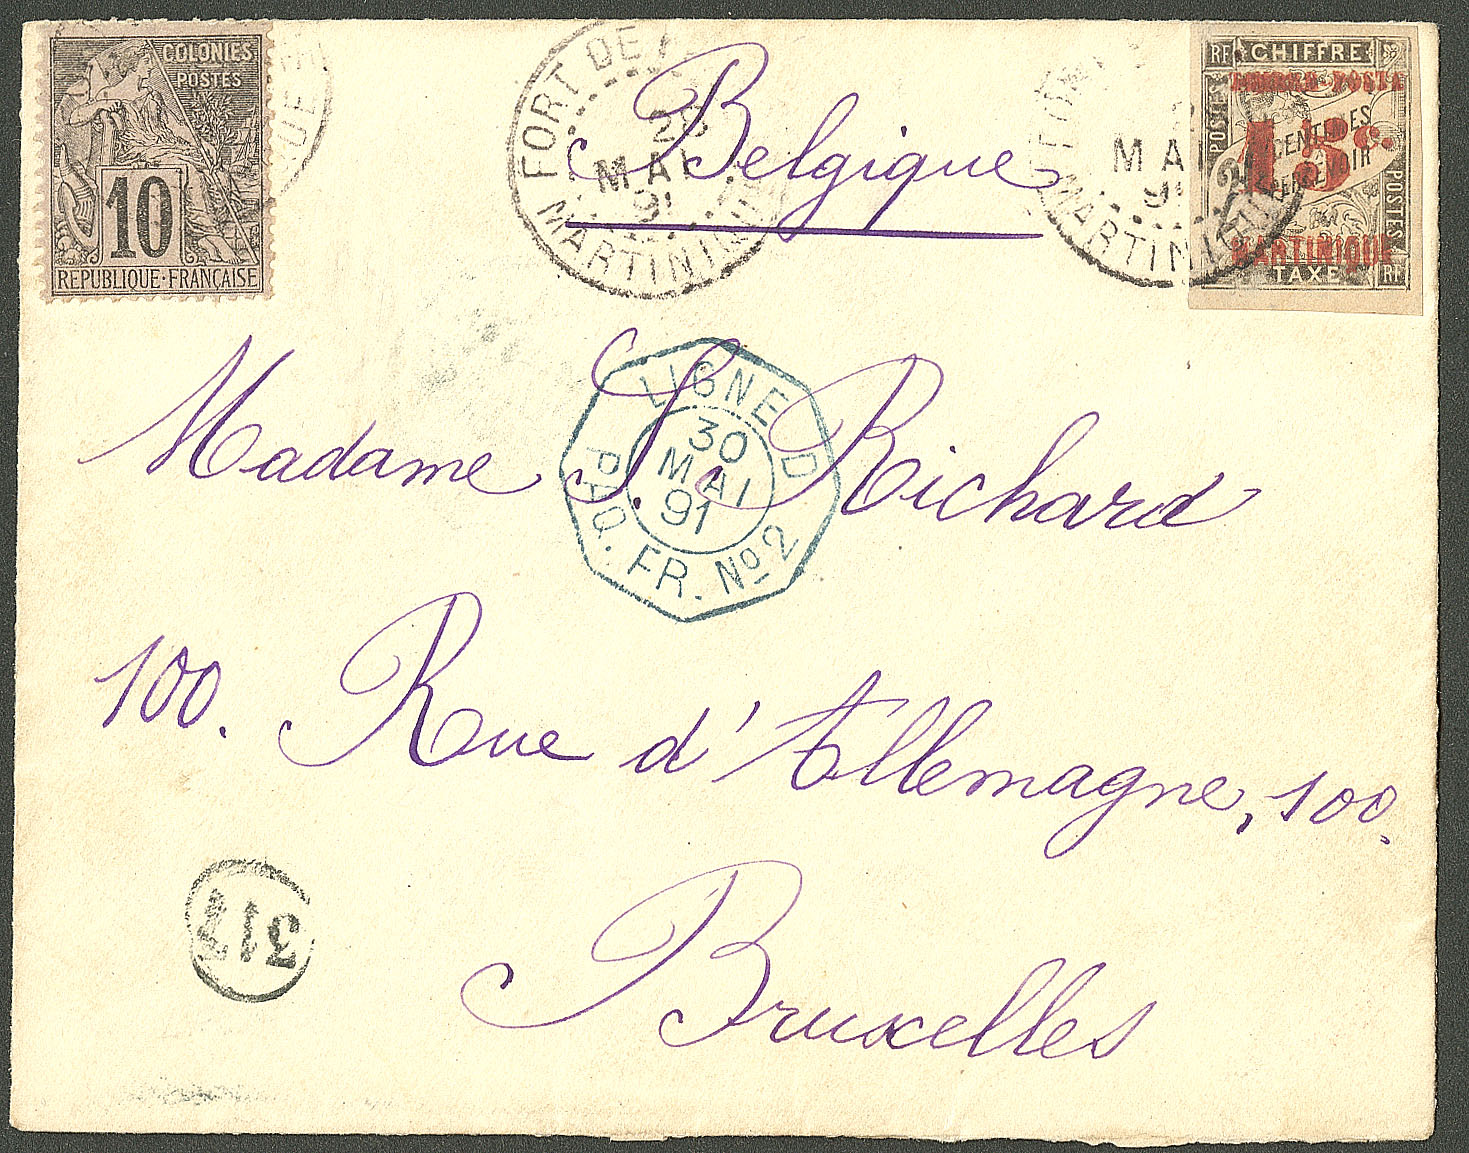 COLONIES
POSTES
10
REPUBLIQUE·FRANÇAISE
FORT DE
MAI
91
MARTINIQUE
Belgique
MAI
91
MARTINIQUE
RF CHIFFRE
TIMBRE-POSTE
POSTES
CENTIMES
15c.
PERCEVOIR
POSTES
MARTINIQUE
TAXE RF
LIGNE D
30
MAI
91
PAQ. FR. No 2
Madame S. Richard
100. Rue d'Allemagne, 100.
Bruxelles
317